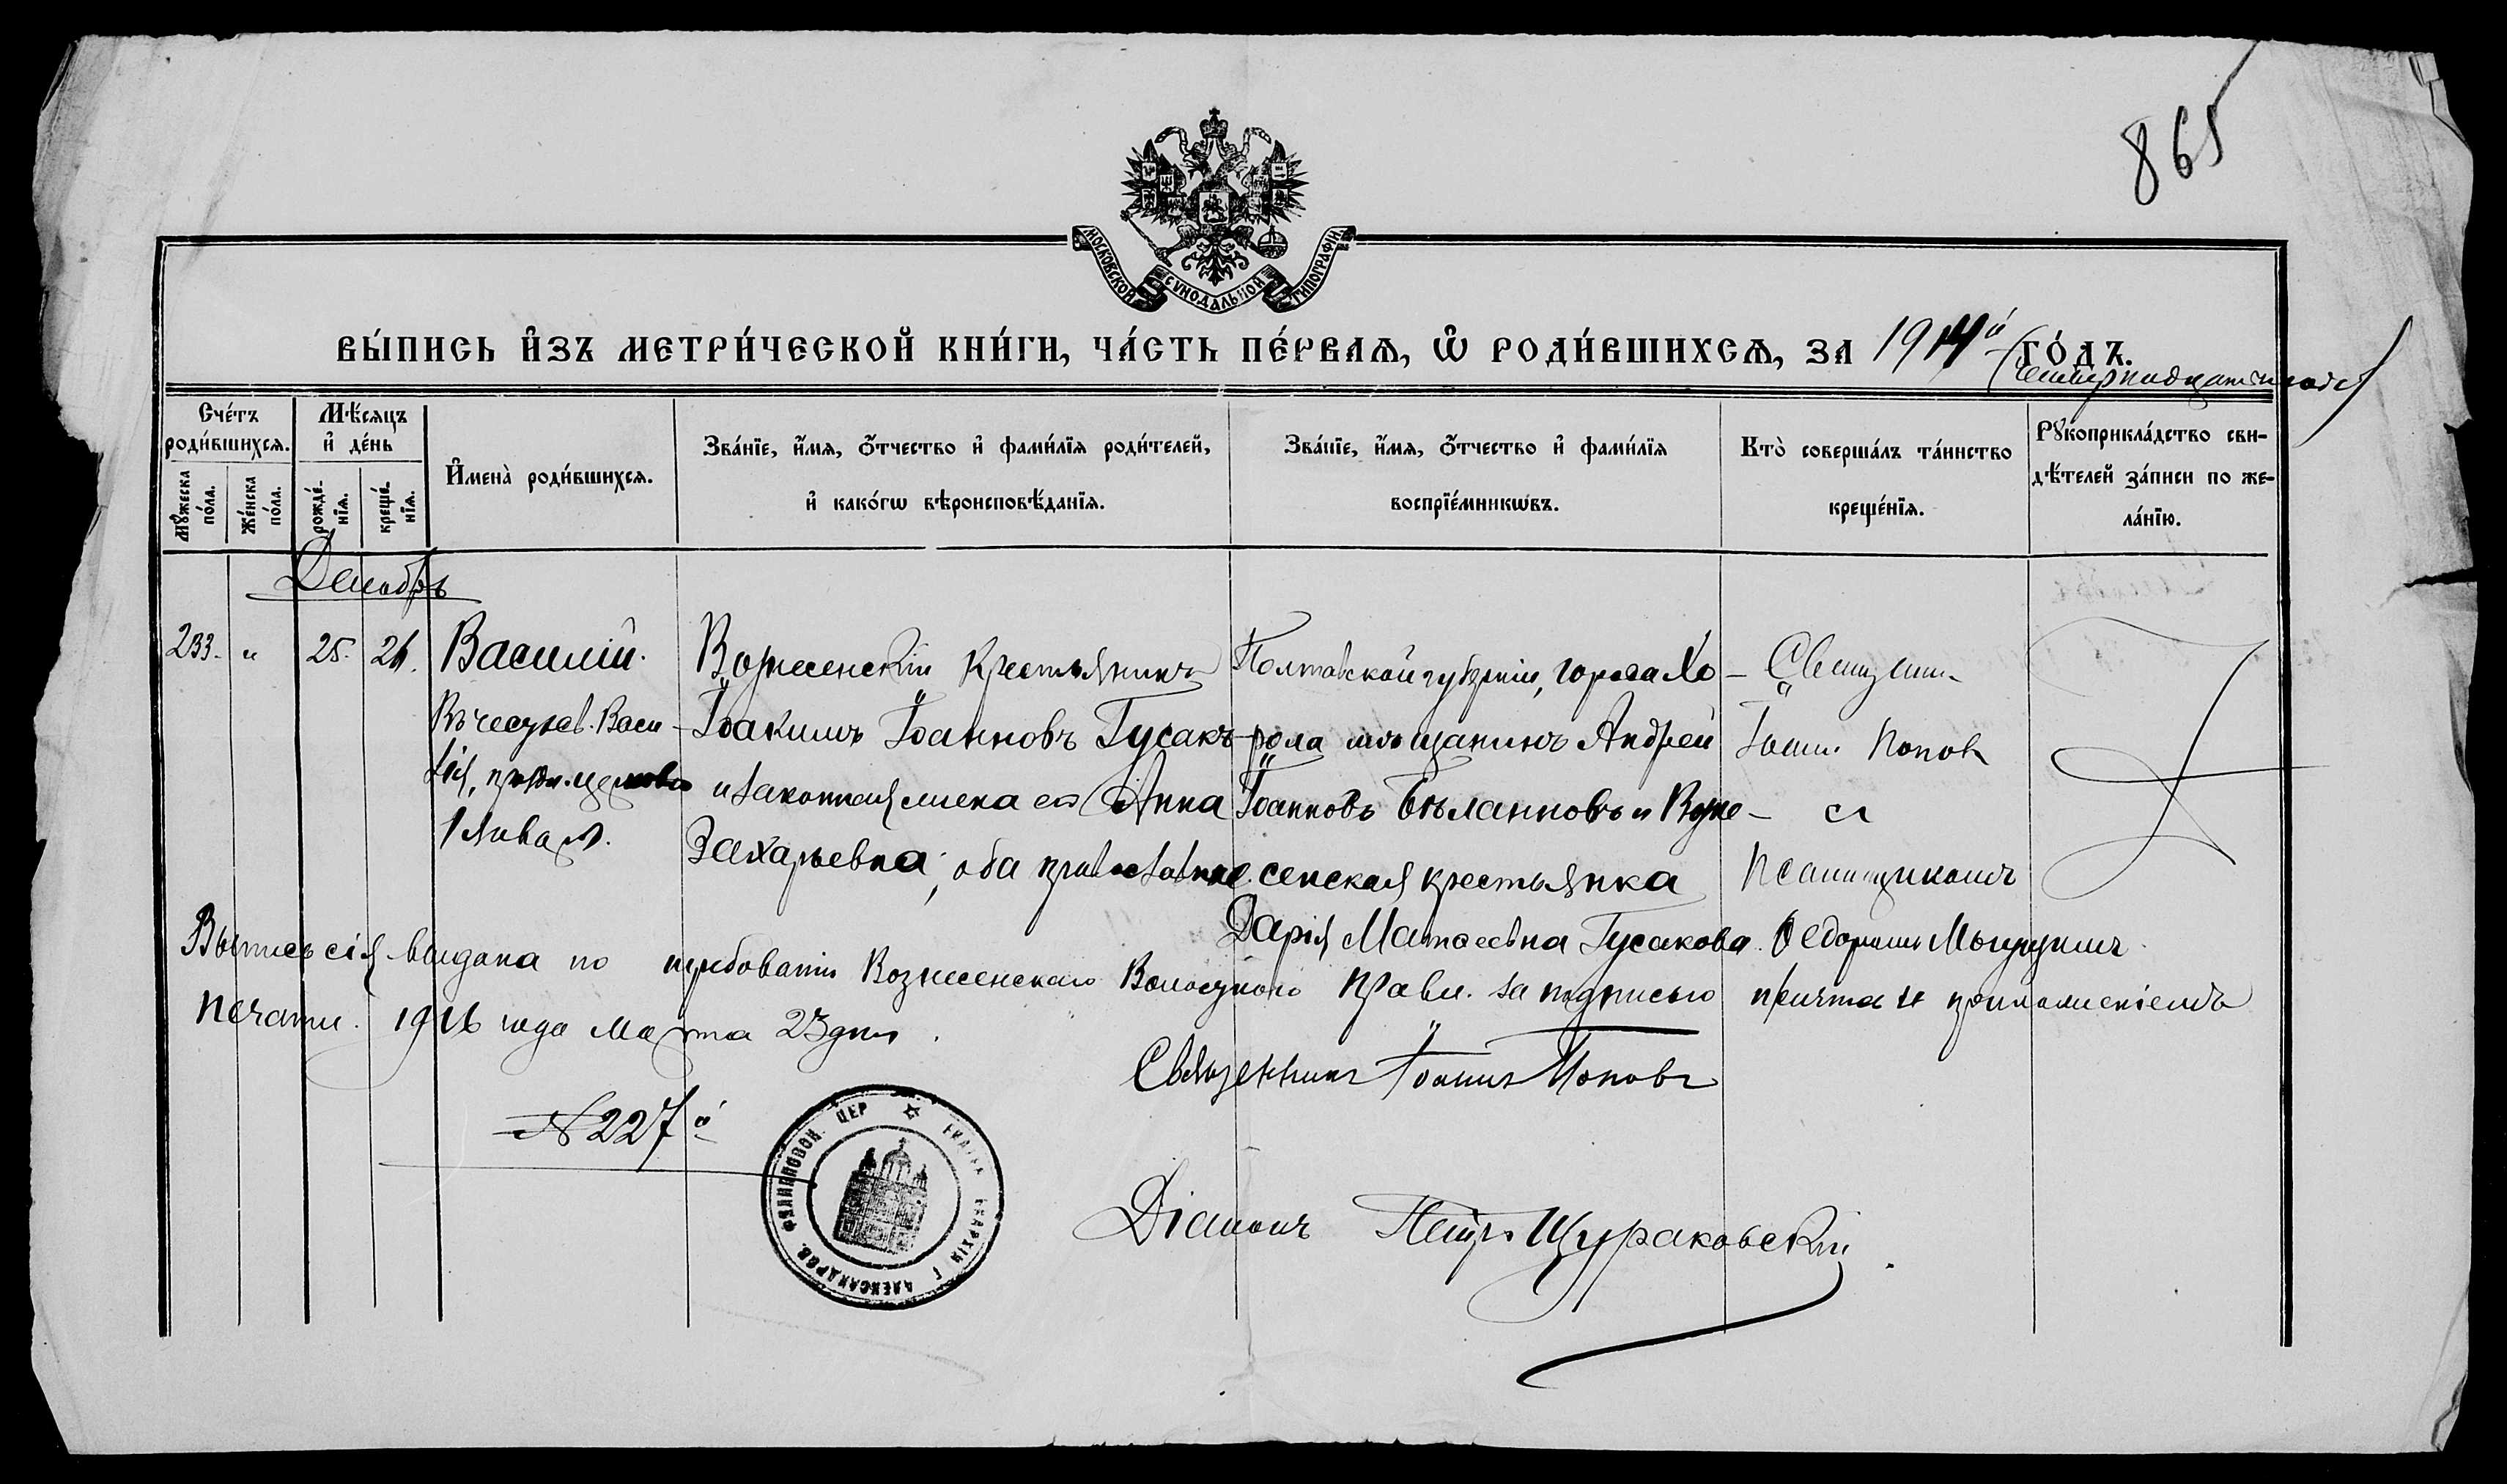 865
МОСКОВСКОЙ СУНОДАЛЬНОЙ ТИПОГРАФІИ
ВЫ́ПИСЬ И҆ЗЪ МЕТРИ́ЧЕСКОЙ КНИ́ГИ, ЧА́СТЬ ПЕ́РВАѦ, Ѡ҆ РОДИ́ВШИХСѦ, ЗА 1914й ГО́ДЪ.
Сче́тъ роди́вшихсѧ.
Мꙋ́жеска по́ла.
Же́нска по́ла.
Мѣ́сяцъ и҆ де́нь
рожде́нїѧ.
креще́нїѧ.
И҆мена̀ роди́вшихсѧ.
Зва́нїе, и҆́мѧ, ѻ҆́тчество и҆ фами́лїѧ роди́телей,
и҆ како́гѡ вѣроисповѣ́данїѧ.
Зва́нїе, и҆́мѧ, ѻ҆́тчество и҆ фами́лїѧ
воспрїе́мникѡвъ.
Кто̀ соверша́лъ та́инство
креще́нїѧ.
Рꙋкоприкла́дство сви-
дѣ́телей за́писи по же-
ла́нїю.
Декабрь
233. " 25. 26.
Василій.
Въ честь св. Васи-
лія,
1 Января.
Вознесенскій крестьянинъ
Іоакимъ Іоанновъ Гусакъ
и законная жена его Анна
Захарьевна; оба православные.
Полтавской губерніи, города Хо-
рола мѣщанинъ Андрей
Іоанновъ Бѣланновъ и Возне-
сенская крестьянка
Дарія Матѳеевна Гусакова.
Священник
Іоаннъ Поповъ
съ
Псаломщикомъ
Ѳедоромъ
Выпись сія выдана по требованію Вознесенскаго Волостного Правл. за подписью причта и приложеніемъ
печати. 1916 года Марта 23 дня.
Священникъ Іоаннъ Поповъ
№ 227й
ЕКАТЕР. ЕПАРХІИ Г. АЛЕКСАНДРОВ. ФИЛИППОВОК. ЦЕР
Діаконъ Петръ Щураковскій.